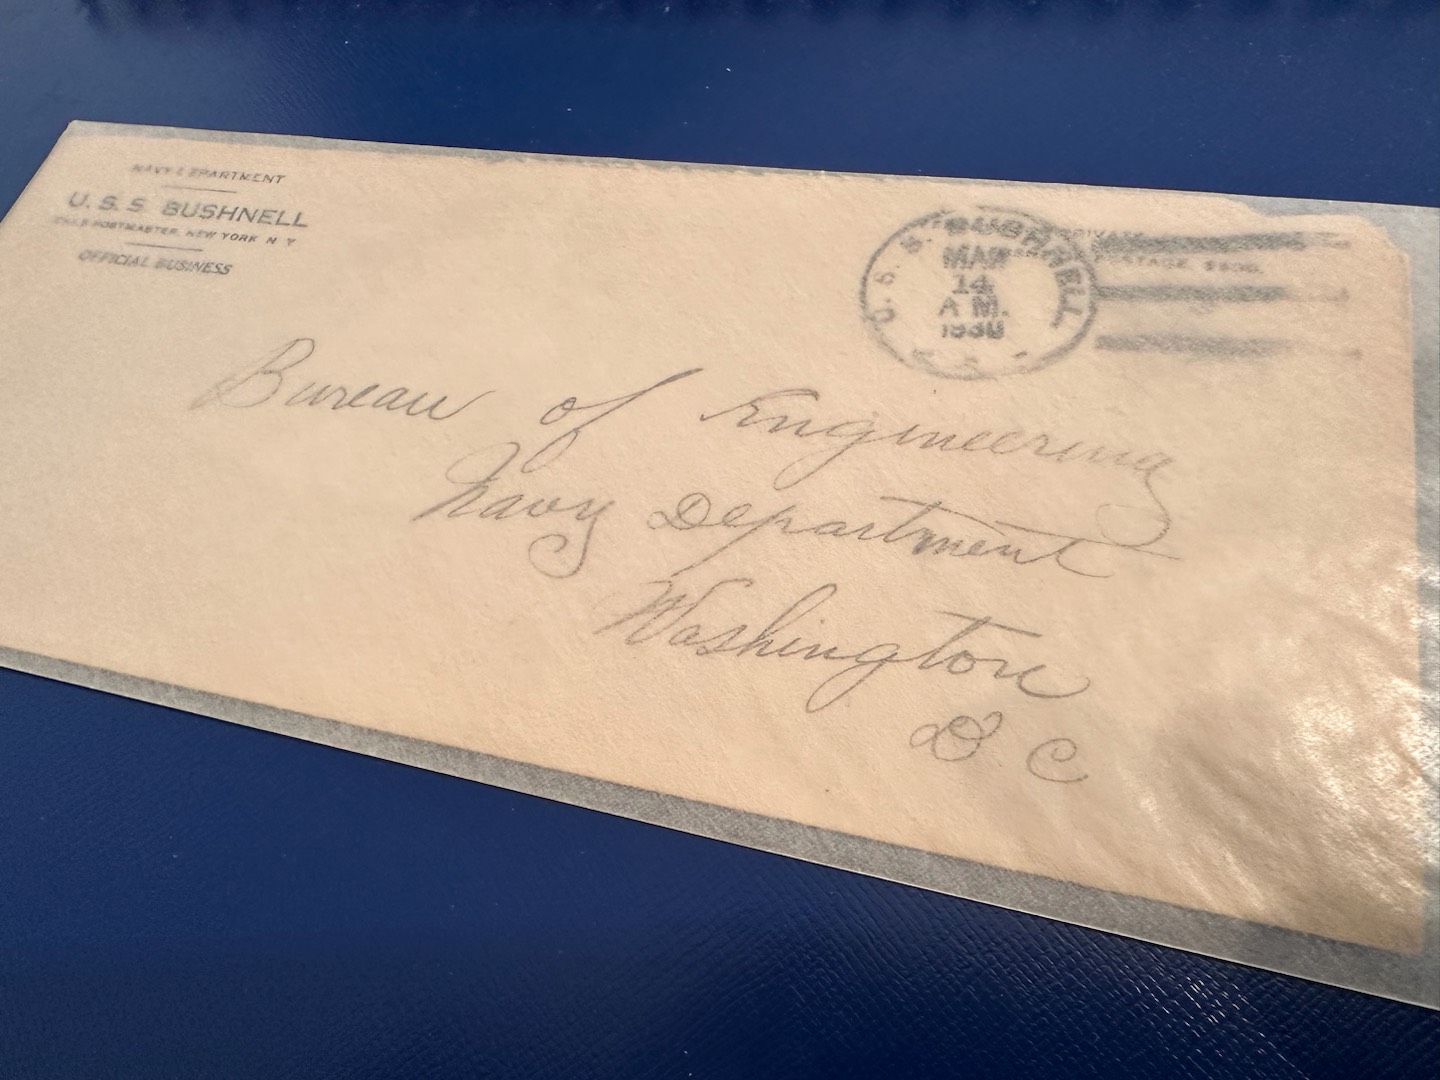 NAVY DEPARTMENT
U. S. S. BUSHNELL
POSTMASTER, NEW YORK N Y
OFFICIAL BUSINESS
U. S. S. BUSHNELL
MAR
14
A M.
1930
PRIVATE
POSTAGE, $300.
Bureau of Engineering
Navy Department
Washington
D. C